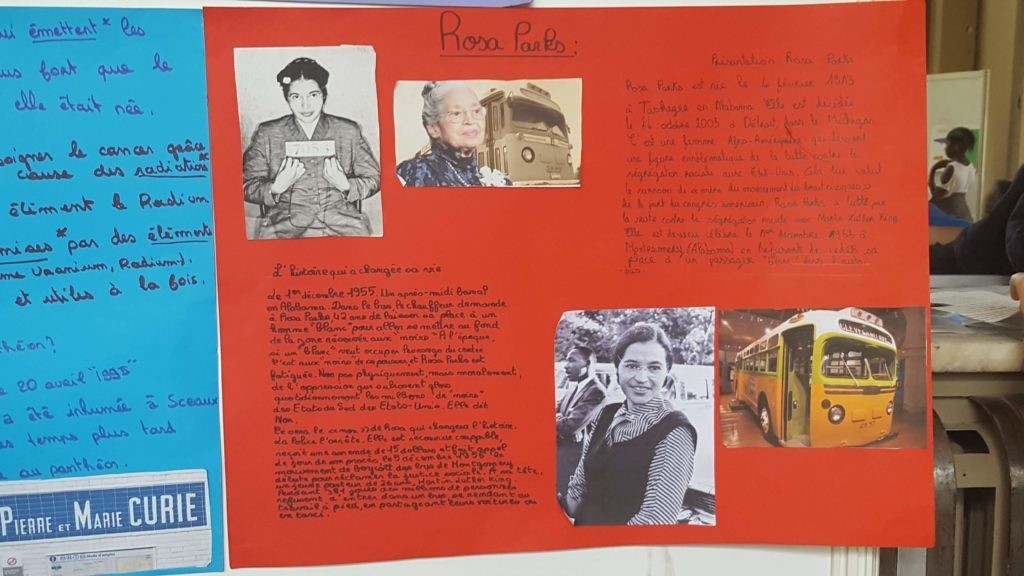 ui émettent* les
us fort que le
elle était née.
soigner le cancer grâce
cause des radiations*
élément le Radium
mises* par des éléments
me Uranium, Radium).
et utiles à la fois.
théon?
e 20 avril "1995"
a été inhumée à Sceaux
temps plus tard
au panthéon.
PIERRE ET MARIE CURIE
Rosa Parks:
7053
Présentation Rosa Parks
Rosa Parks est née le 4 février 1913
à Tuskegee en Alabama Elle est décédée
le 24 octobre 2005 à Détroit, dans le Michigan
C'est une femme Afro-Américaine qui devient
une figure emblématique de la lutte contre la
ségrégation raciale aux Etat-Unis. Cela lui valut
le surnom de « mère du mouvement des droits civiques »
de la part du congrès américain, Rosa Parks a lutté par
la suite contre la ségrégation raciale avec Martin Luther King.
Elle est devenu célèbre le 1er décembre 1955 à
Montgomery (Alabama) en refusant de céder sa
place à un passager "blanc" dans l'auto-
bus.
L'histoire qui a changée sa vie
Le 1er décembre 1955. Un après-midi banal
en Alabama. Dans le bus, le chauffeur demande
à Rosa Parks, 42 ans de laisser sa place à un
homme "Blanc" pour aller se mettre au fond
de la zone réservée aux "noirs". A l'époque,
si un "blanc" veut occuper
c'est aux noirs de se pousser et Rosa Parks est
fatiguée. Non pas physiquement, mais moralement,
de l'oppression que subissent
quotidiennement les millions de "noirs"
des Etats du Sud des Etats-Unis. Elle dit
Non.
Ce sera le « non » de Rosa qui changera l'histoire.
La Police l'arrête. Elle est reconnue coupable,
reçoit une amende de 15 dollars et fait appel
Le jour de son procès, le 5 décembre 1955 le
mouvement de boycott des bus de Montgomery
débute pour réclamer la justice sociale. A sa tête,
un jeune pasteur de 26 ans, Martin Luther King.
Pendant 381 jours des millions de personnes
refusent d'entrer dans un bus se rendant au
travail à pied, en partageant leurs voitures ou
en taxi.